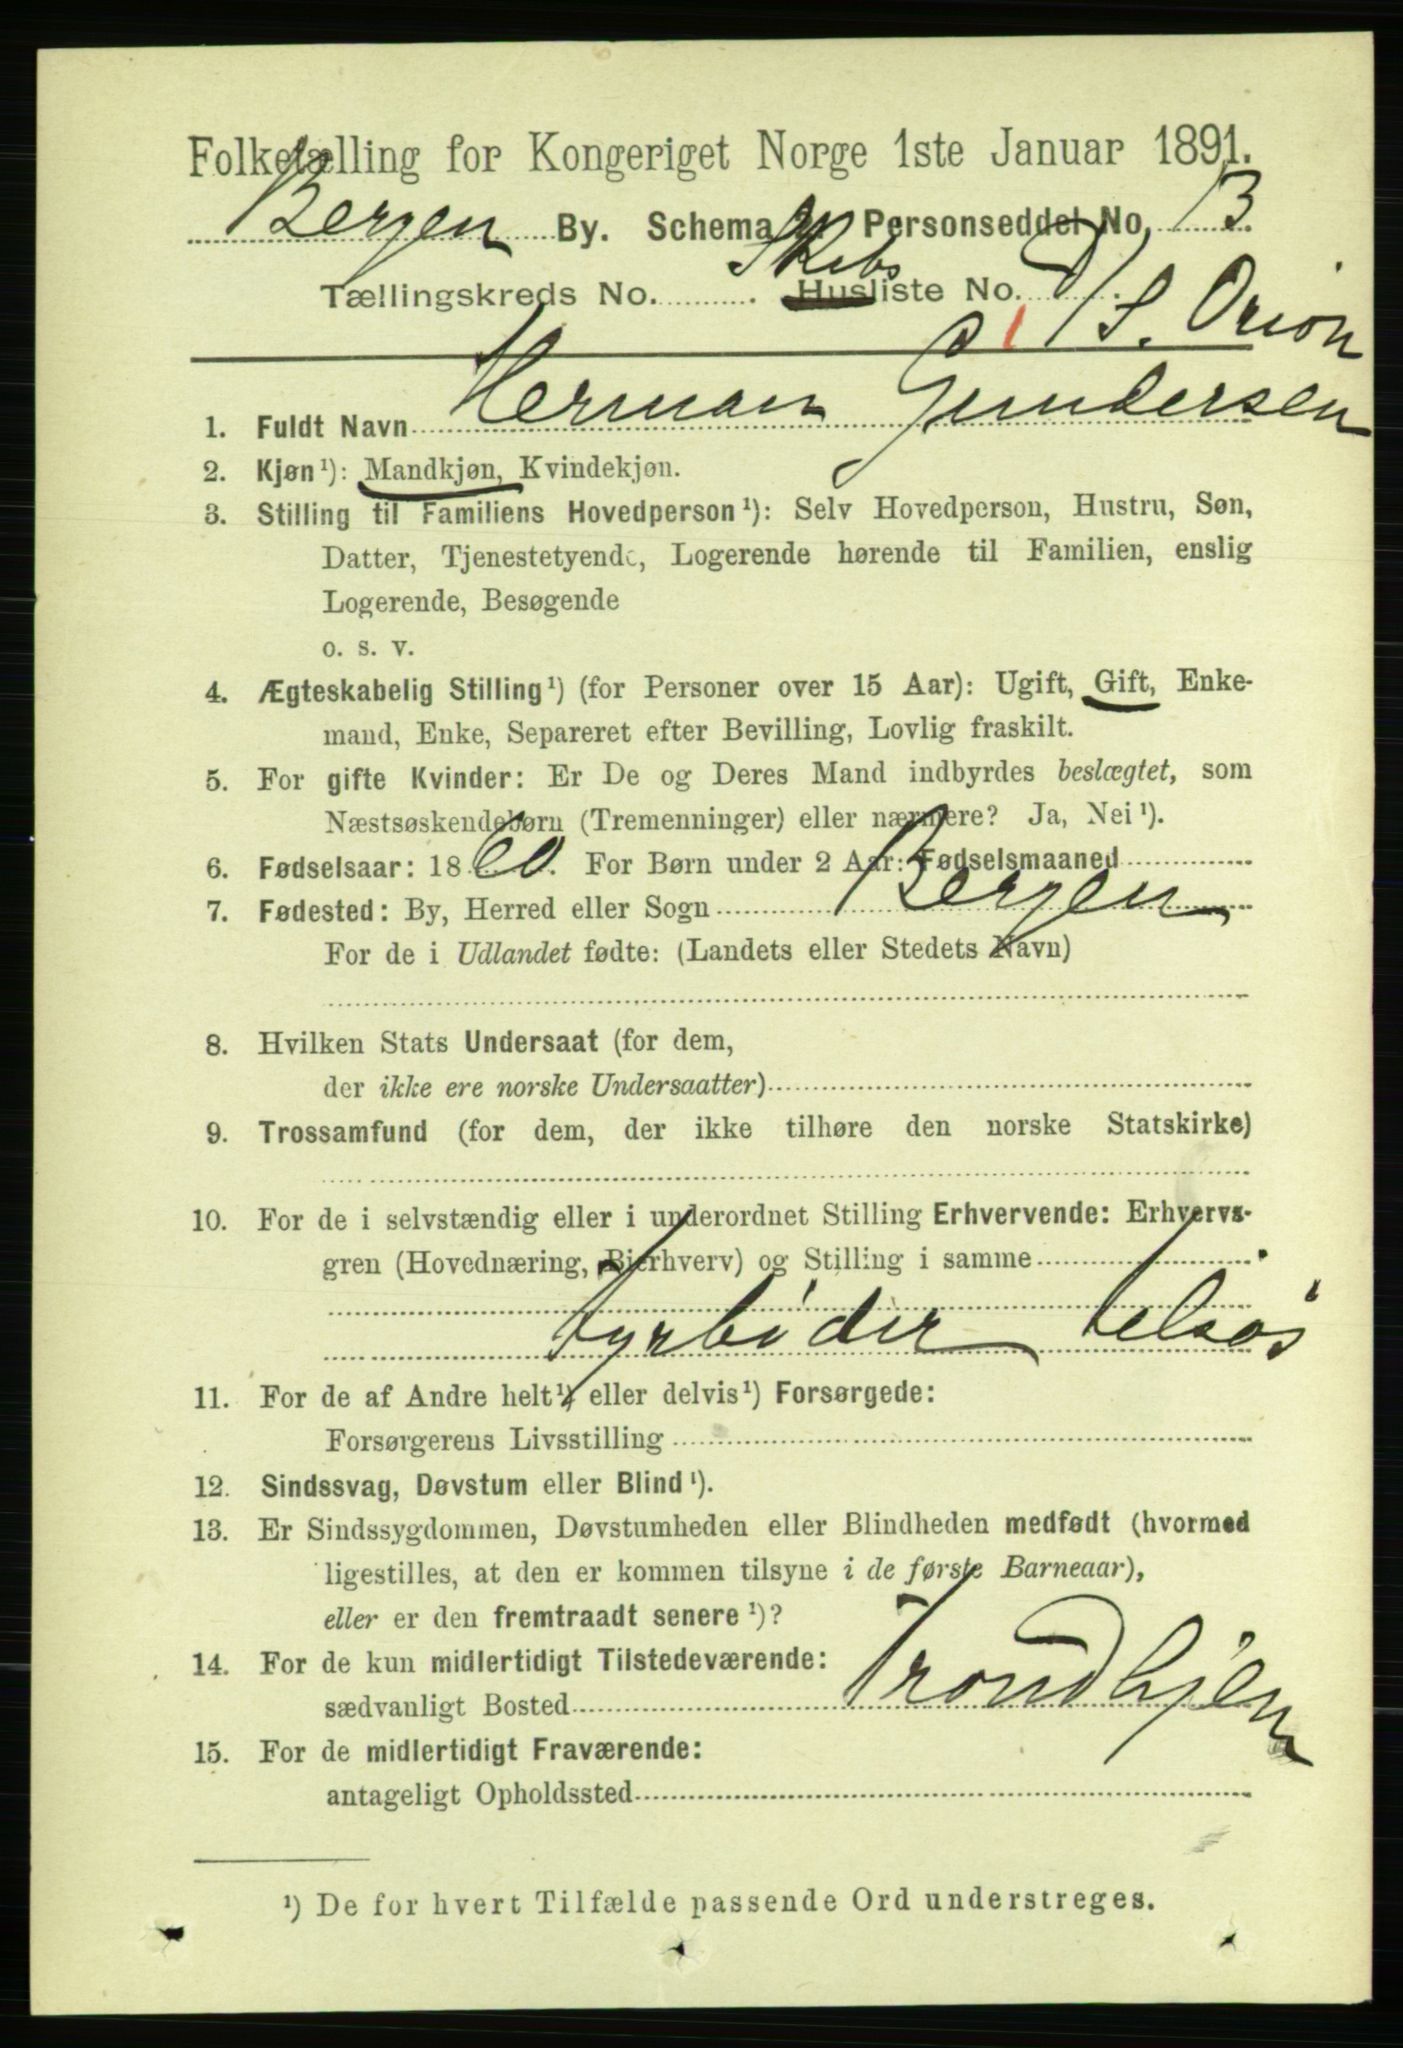 Folketælling for Kongeriget Norge 1ste Januar 1891.
Bergen By. Schema 2. Personseddel No. 13.
Skibs
Tællingskreds No. . Husliste No. .
1 D/S. Orion
1. Fuldt Navn Herman Gundersen
2. Kjøn ¹): Mandkjøn, Kvindekjøn.
3. Stilling til Familiens Hovedperson ¹): Selv Hovedperson, Hustru, Søn,
Datter, Tjenestetyende, Logerende hørende til Familien, enslig
Logerende, Besøgende
o. s. v.
4. Ægteskabelig Stilling ¹) (for Personer over 15 Aar): Ugift, Gift, Enke-
mand, Enke, Separeret efter Bevilling, Lovlig fraskilt.
5. For gifte Kvinder: Er De og Deres Mand indbyrdes beslægtet, som
Næstsøskendebørn (Tremenninger) eller nærmere? Ja, Nei ¹).
6. Fødselsaar: 1860. For Børn under 2 Aar: Fødselsmaaned
7. Fødested: By, Herred eller Sogn Bergen
For de i Udlandet fødte: (Landets eller Stedets Navn)
8. Hvilken Stats Undersaat (for dem,
der ikke ere norske Undersaatter)
9. Trossamfund (for dem, der ikke tilhøre den norske Statskirke)
10. For de i selvstændig eller i underordnet Stilling Erhvervende: Erhvervs-
gren (Hovednæring, Bierhverv) og Stilling i samme
Fyrbøder tilsøs
11. For de af Andre helt ¹) eller delvis ¹) Forsørgede:
Forsørgerens Livsstilling
12. Sindssvag, Døvstum eller Blind ¹).
13. Er Sindssygdommen, Døvstumheden eller Blindheden medfødt (hvormed
ligestilles, at den er kommen tilsyne i de første Barneaar),
eller er den fremtraadt senere ¹)?
14. For de kun midlertidigt Tilstedeværende:
sædvanligt Bosted Trondhjem
15. For de midlertidigt Fraværende:
antageligt Opholdssted
¹) De for hvert Tilfælde passende Ord understreges.